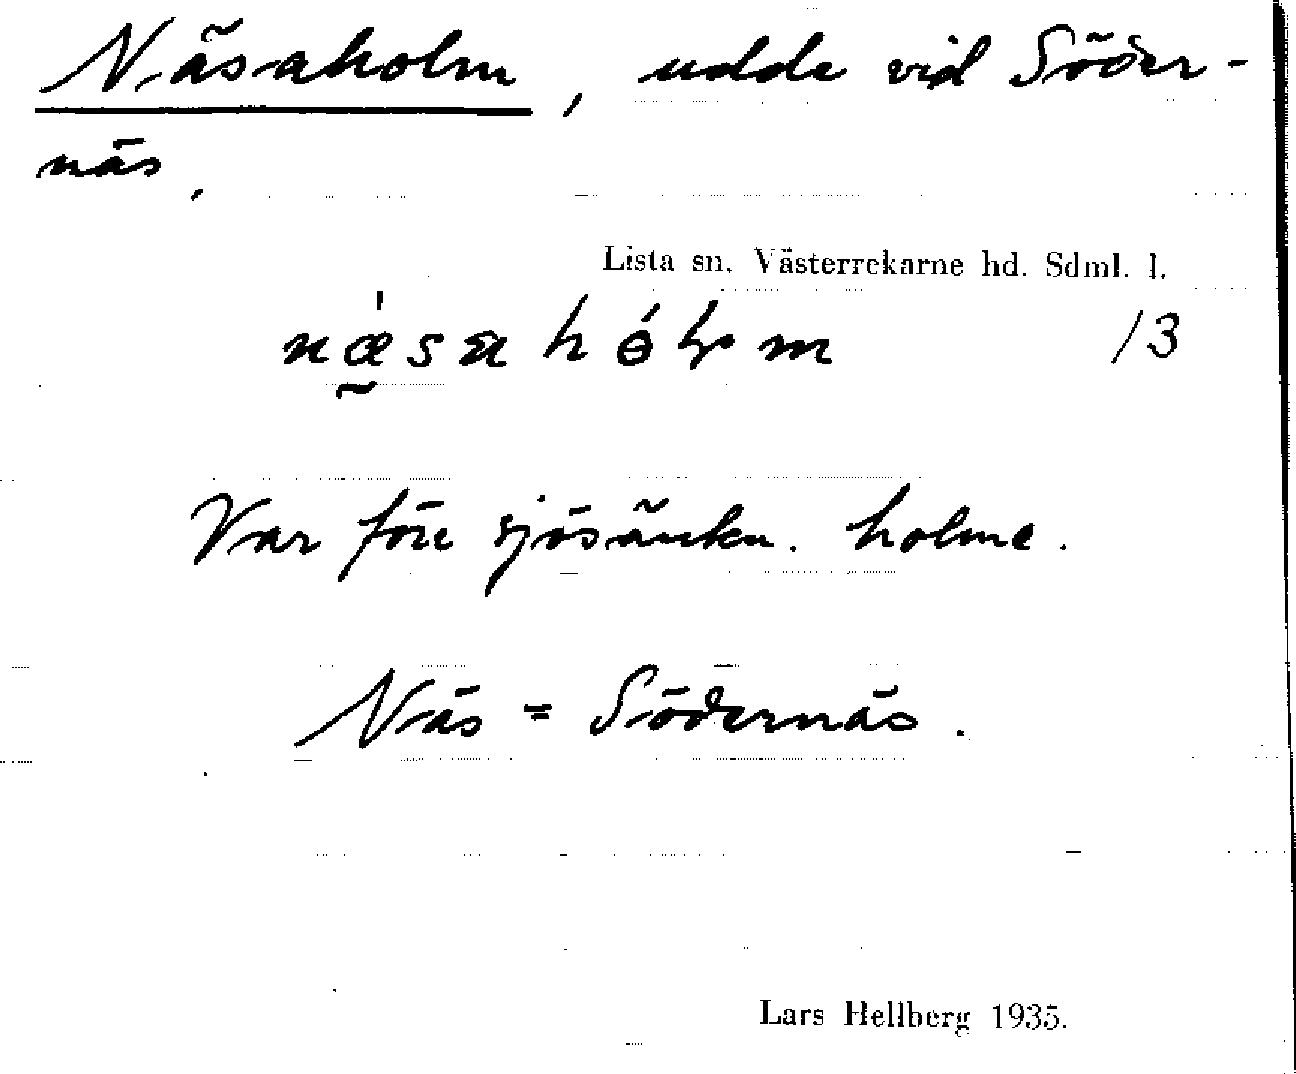 Näsaholm, udde vid Söder-
näs.
Lista sn. Västerrekarne hd. Sdml. l.
13
Var före sjösänkn. holme.
Näs = Södernäs.
Lars Hellberg 1935.